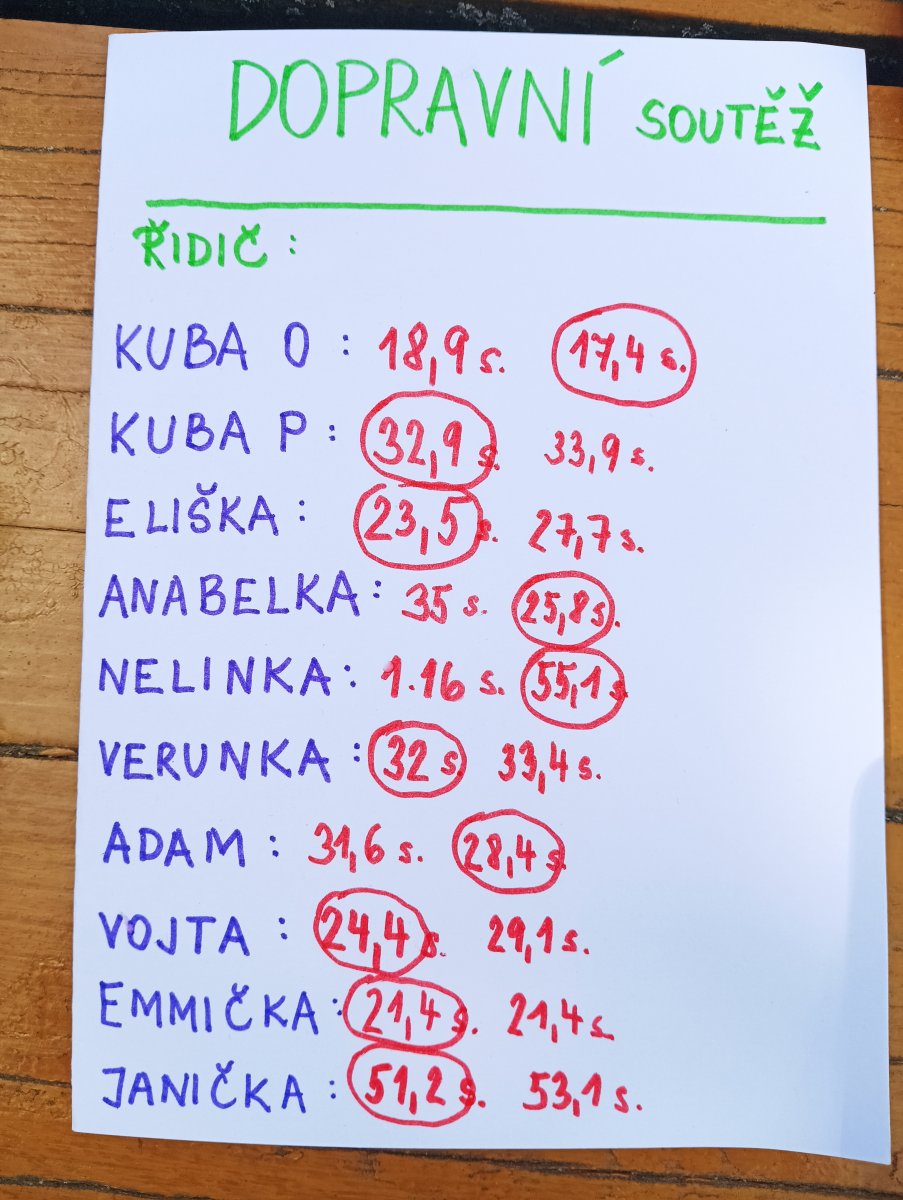 DOPRAVNÍ SOUTĚŽ
ŘIDIČ :
KUBA O : 18,9 s. 17,4 s.
KUBA P : 32,9 s. 33,9 s.
ELIŠKA : 23,5 s. 27,7 s.
ANABELKA : 35 s. 25,8 s.
NELINKA : 1.16 s. 55,1 s
VERUNKA : 32 s. 33,4 s.
ADAM : 31,6 s. 28,4 s.
VOJTA : 24,4 s. 29,1 s.
EMMIČKA : 21,4 s. 21,4 s.
JANIČKA : 51,2 s. 53,1 s.